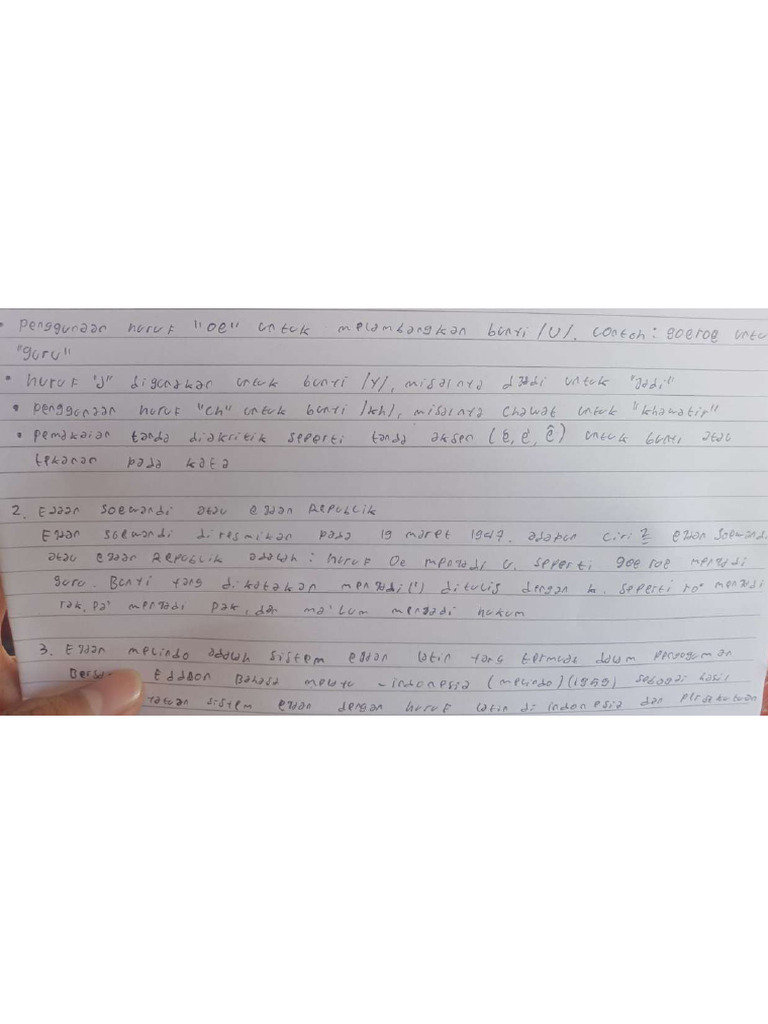 • Penggunaan huruf "oe" untuk melambangkan bunyi /U/. contoh: goeroe untu
"guru"
• huruf "J" digunakan untuk bunyi /Y/, misalnya djadi untuk "Jadi"
• Penggunaan huruf "ch" untuk bunyi /kh/, misalnya chawat untuk "khawatir"
• Pemakaian tanda diakritik seperti tanda aksen untuk bunyi atau
tekanan pada kata
2. Ejaan Soewandi atau ejaan Republik
Ejaan Soewandi diresmikan pada 19 maret 1947. adapun ciri2 ejaan Soewandi
atau ejaan Republik adalah: huruf Oe menjadi U. seperti goeroe menjadi
guru. Bunyi yang dikatakan menjadi (') ditulis dengan k. seperti ro" menjadi
rak, pa' menjadi pak, dan ma'lum menjadi hukum
3. Ejaan melindo adalah sistem ejaan latin yang termuat dalam Pengumuman
Bersa Bahasa melayu - indonesia (melindo) (1959) sebagai hasil
sistem ejaan dengan huruf latin di indonesia dan Persekutuan